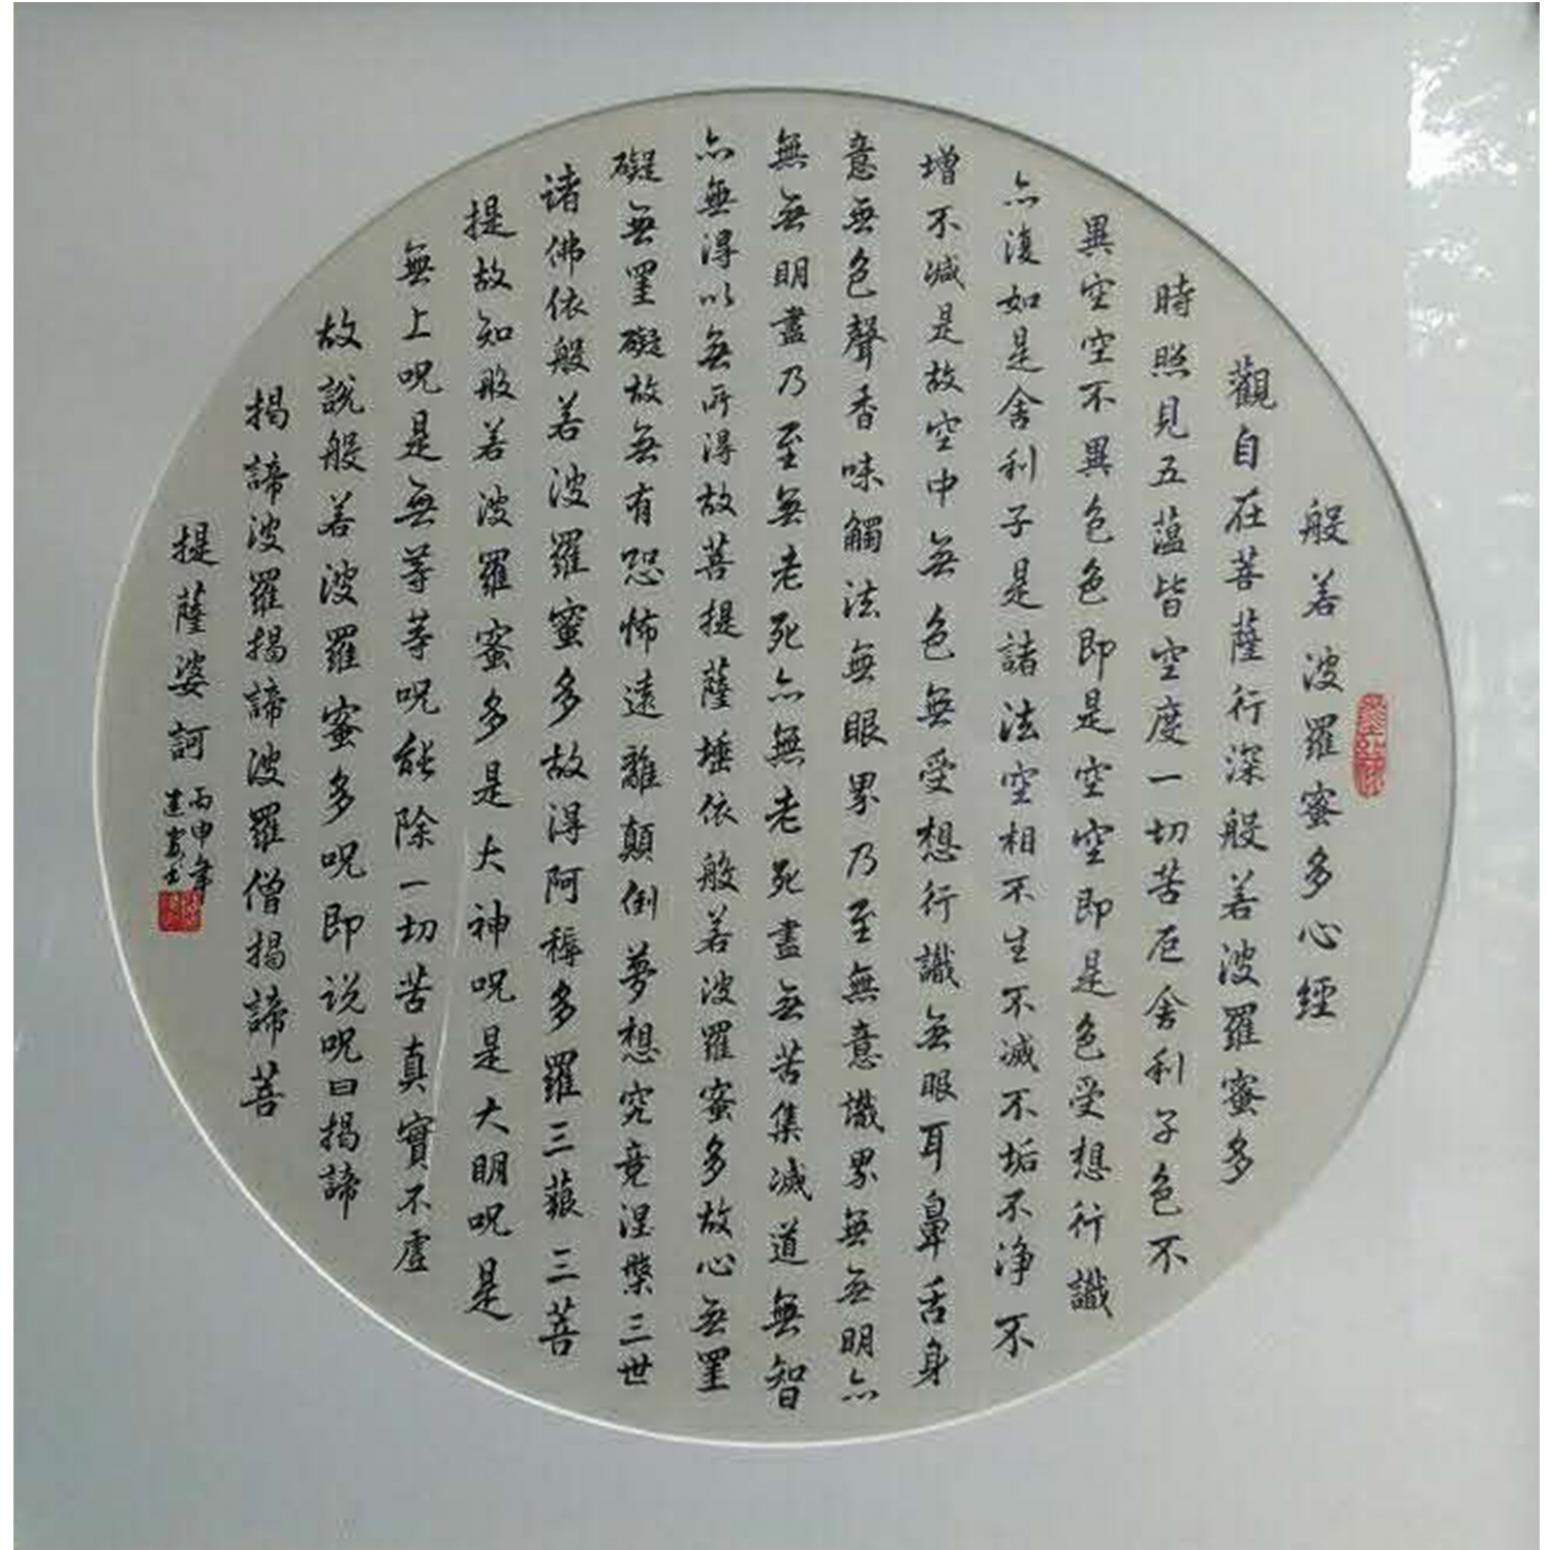 般若波羅蜜多心經
觀自在菩薩行深般若波羅蜜多
時照見五蕴皆空度一切苦厄舍利子色不
異空空不異色色即是空空即是色受想行識
亦復如是舍利子是諸法空相不生不滅不垢不淨不
增不減是故空中無色無受想行識無眼耳鼻舌身
意無色聲香味觸法無眼界乃至無意識界無無明亦
無無明盡乃至無老死亦無老死盡無苦集滅道無智
亦無得以無所得故菩提薩埵依般若波羅蜜多故心無罣
礙無罣礙故無有恐怖遠離顛倒夢想究竟涅槃三世
诸佛依般若波羅蜜多故得阿耨多羅三藐三菩
提故知般若波羅蜜多是大神呪是大明呪是
無上呪是無等等呪能除一切苦真實不虛
故說般若波羅蜜多呪即说呪曰揭諦
揭諦波羅揭諦波羅僧揭諦菩
提薩婆訶
丙申年
建書